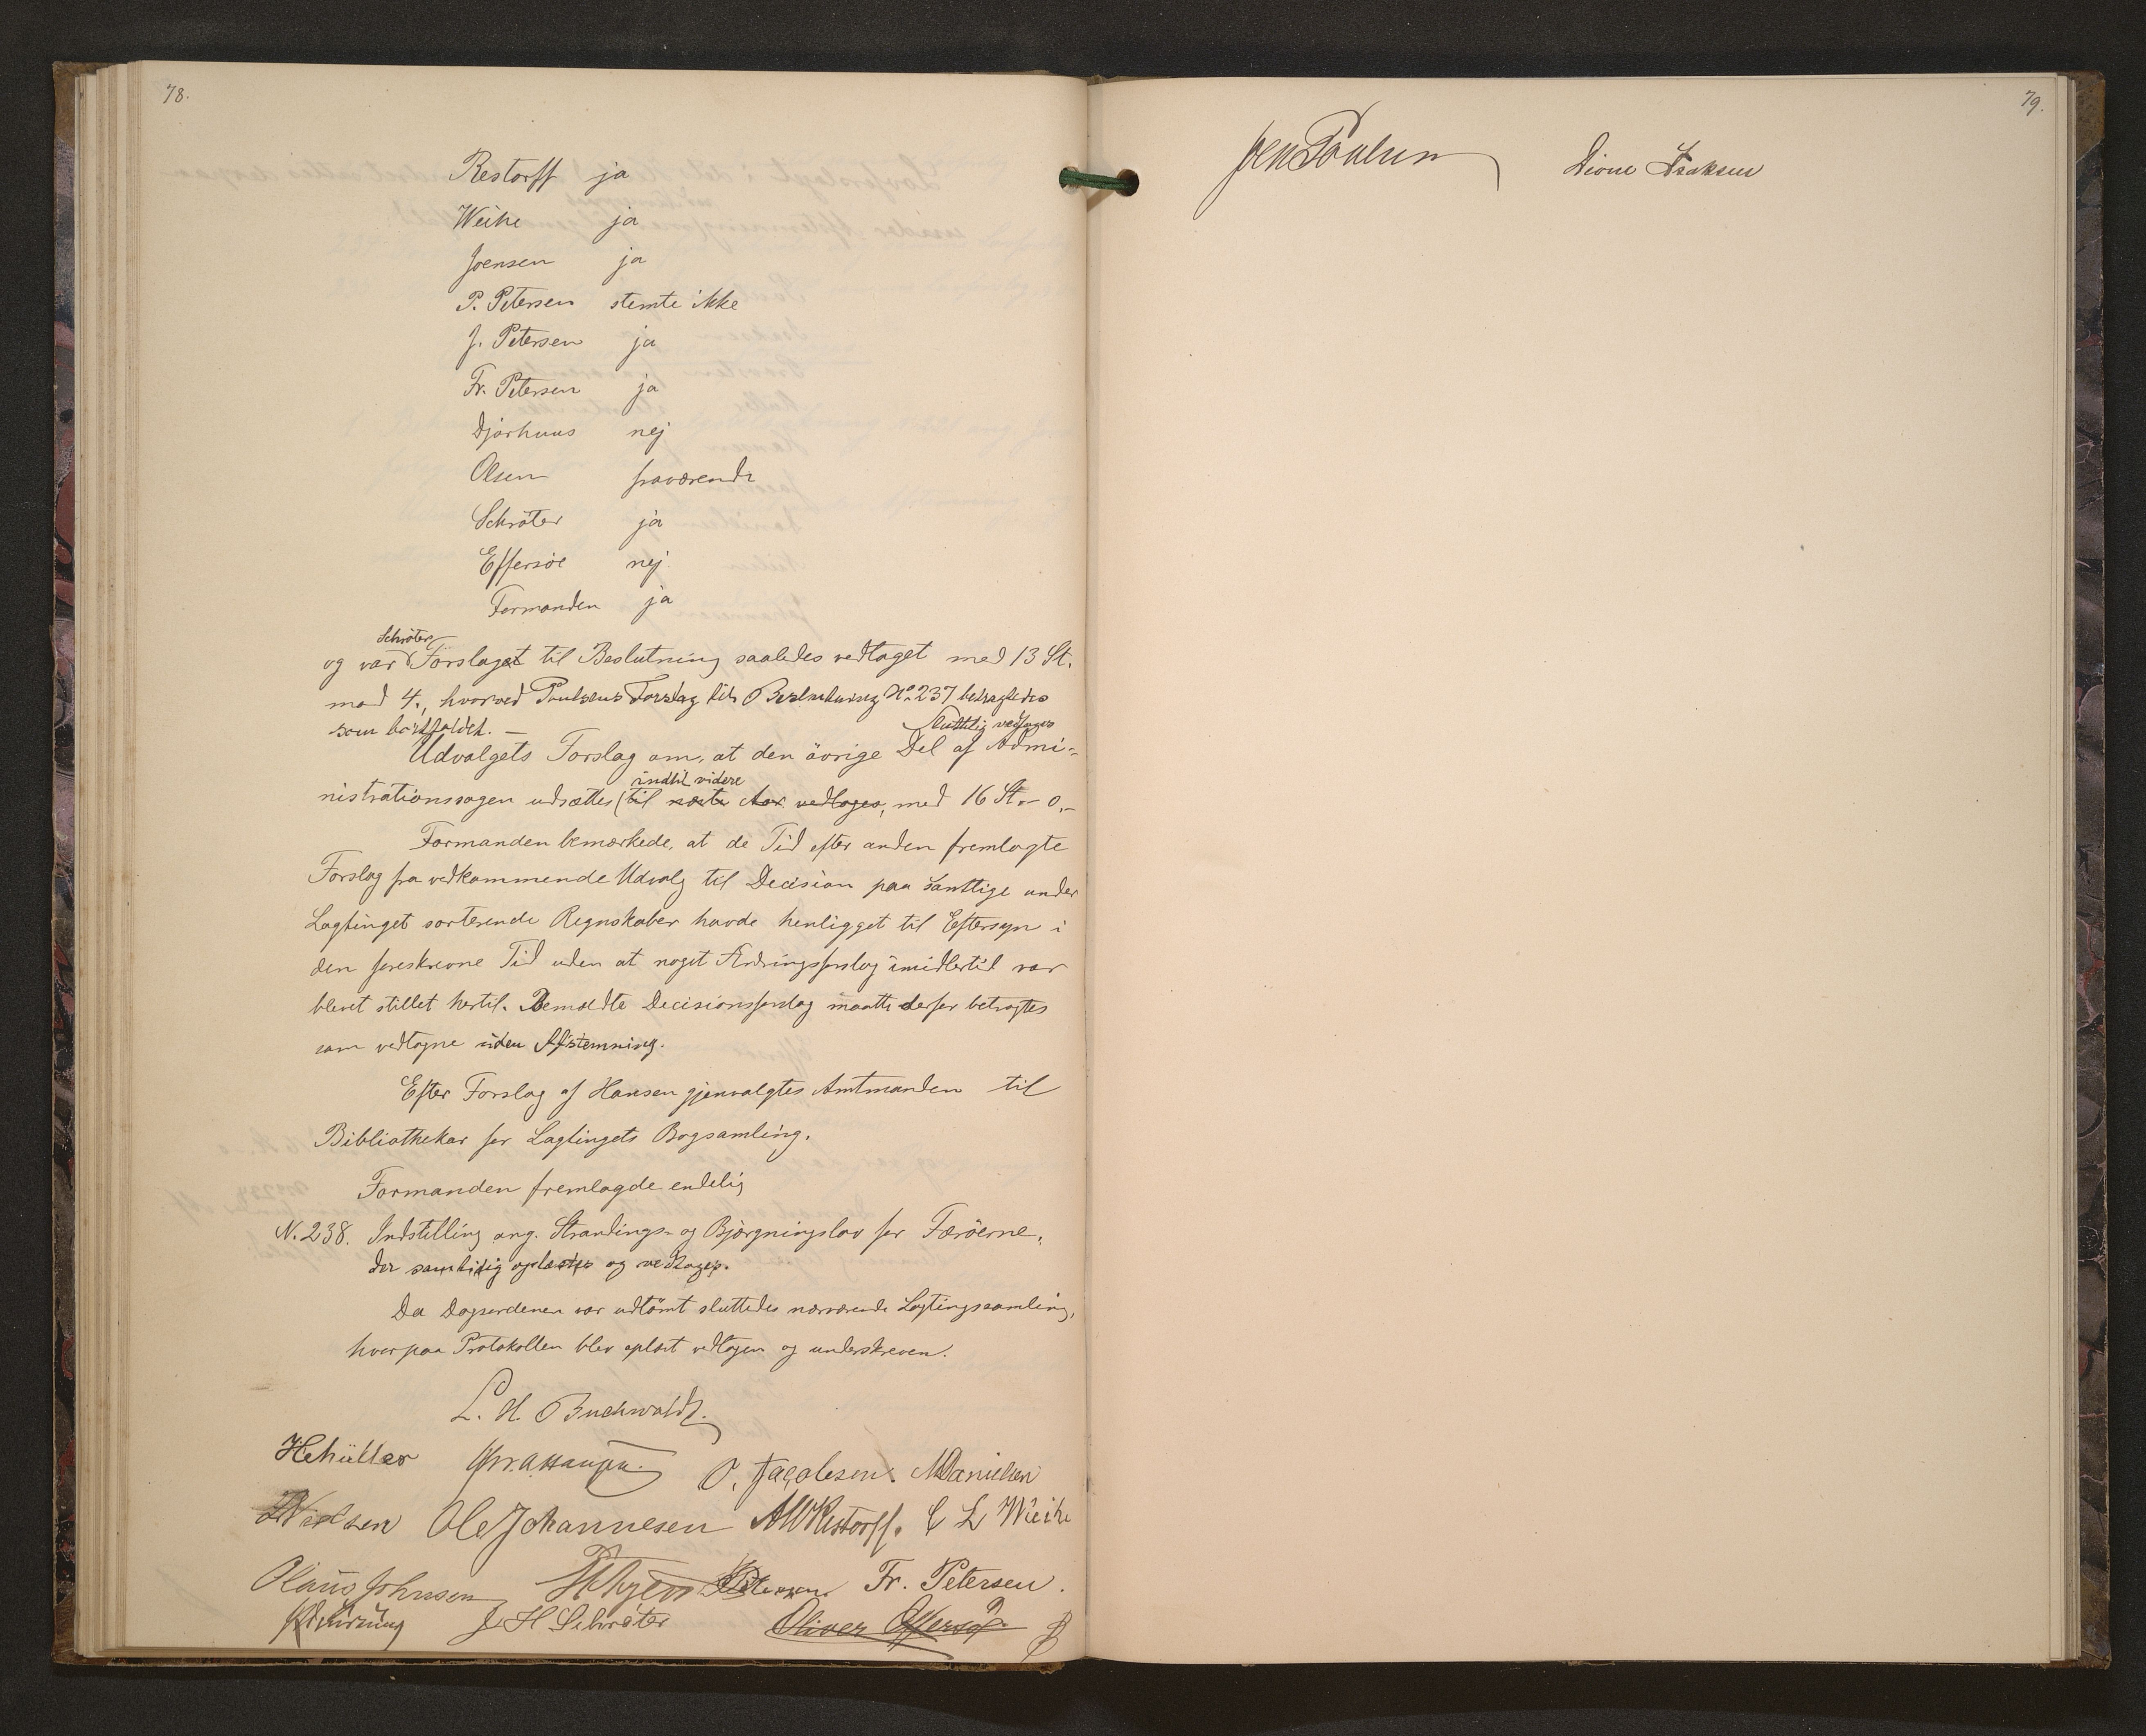 78.
Restorff ja
Weihe ja
Joensen ja
P. Petersen stemte ikke
J. Petersen ja
Fr. Petersen ja
Djørhuus nej
Olsen fraværende
Schrøter ja
Effersøe nej
Formanden ja
Schrøters
og var Forslaget til Beslutning saaledes vedtaget med 13 St.
mod 4., hvorved Poulsens Forslag til Beslutning No 237 betragtedes
som bortfaldet. —
Sluttelig vedtoges
Udvalgets Forslag om, at den øvrige Del af Admi-
indtil videre
nistrationssagen udsættes (til næste Aar vedtoges, med 16 St. - 0.-
Formanden bemærkede, at de Tid efter anden fremlagte
Forslag fra vedkommende Udvalg til Decision paa samtlige under
Lagtinget sorterende Regnskaber havde henligget til Eftersyn i
den foreskrevne Tid uden at noget Ændringsforslag imidlertid var
blevet stillet hertil. Bemældte Decisionsforslag maatte derfor betragtes
som vedtagne uden Afstemning.
Efter Forslag af Hansen gjenvalgtes Amtmanden til
Bibliothekar for Lagtingets Bogsamling.
Formanden fremlagde endelig
N. 238. Indstilling ang. Strandings- og Bjergningslov for Færøerne,
der samtidig oplæstes og vedtoges.
Da Dagsordenen var udtømt sluttedes nærværende Lagtingssamling,
hvorpaa Protokollen blev oplæst vedtagen og underskreven.
L. H. Buchwaldt.
O. Jacobsen. MDanielsen
Nielsen Ole Johannesen MWRestorff. C L Weihe
Olaus Johnsen Petersen Fr. Petersen.
J H Schrøter Oliver Effersøe
79.
Jen Poulsen Dione Isaksen